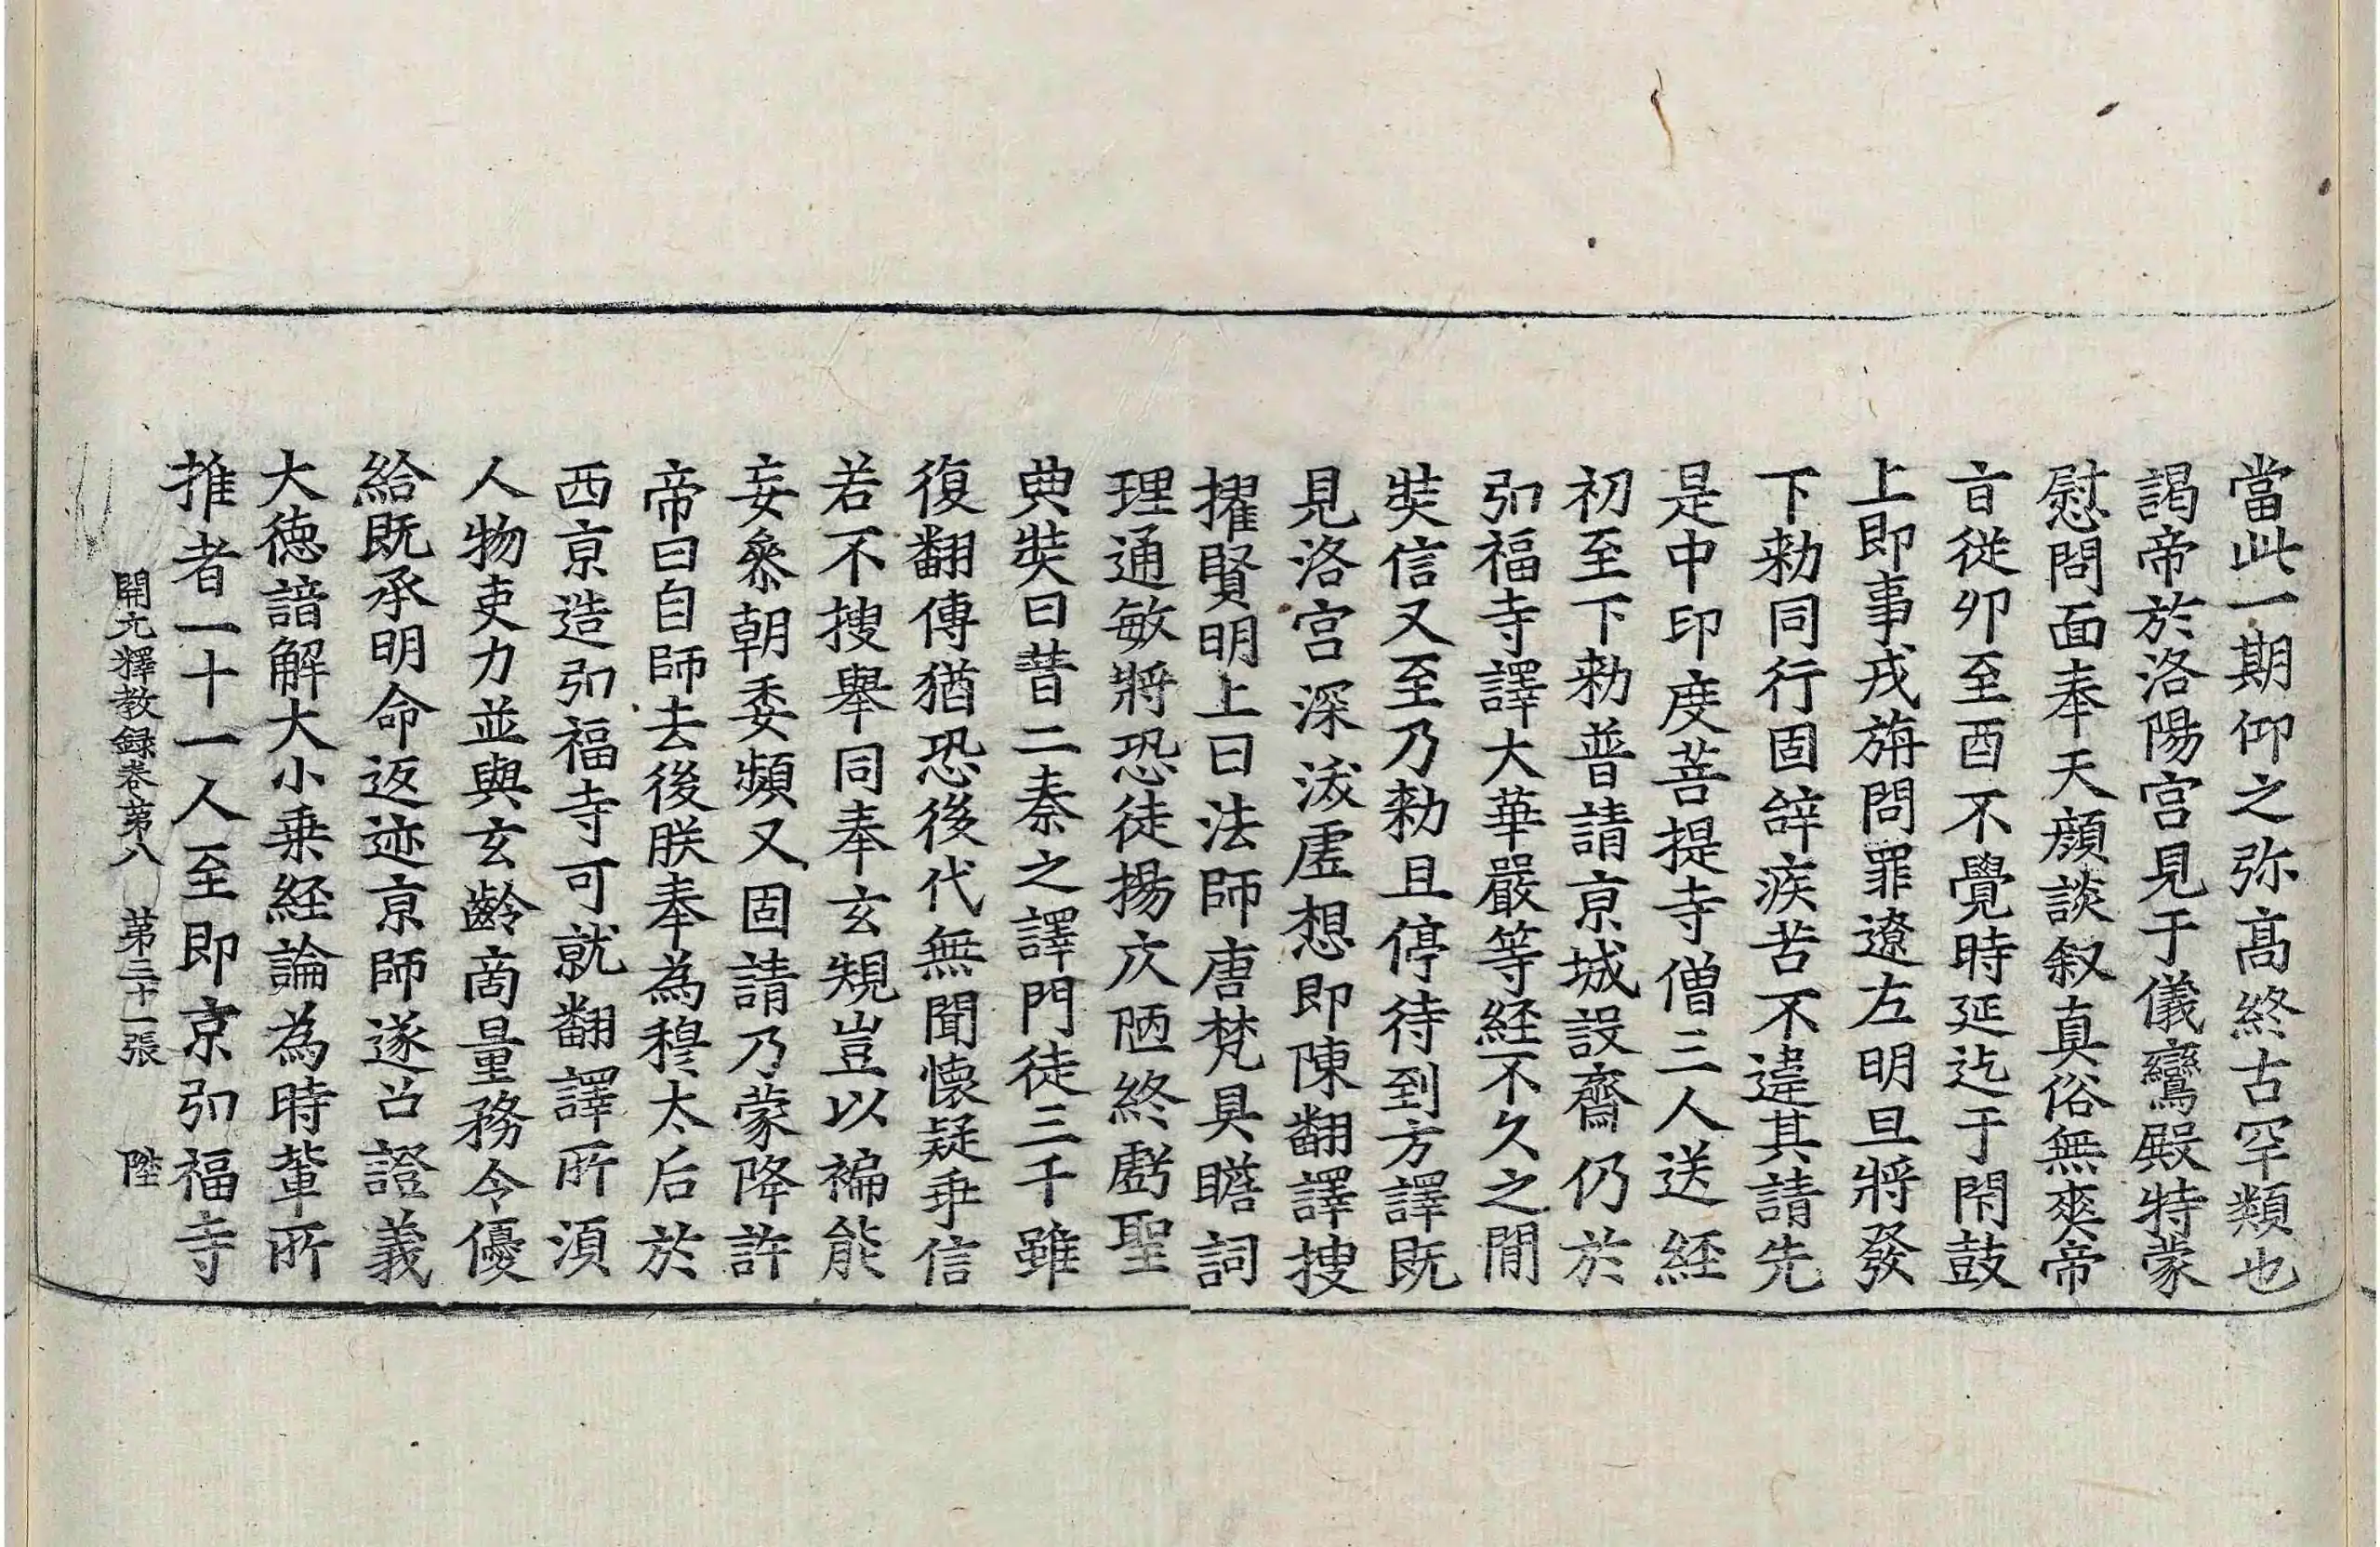 當此一期仰之弥髙終古罕類也
謁帝於洛陽宫見于儀鸞殿特蒙
慰問面奉天顔談叙真俗無爽帝
㫖從卯至酉不覺時延迄于閇鼓
上即事戎旃問罪遼左明旦將發
下勑同行固辝疾苦不違其請先
是中印度菩提寺僧三人送経
初至下勑普請京城設齋仍於
弘福寺譯大華嚴等経不久之間
奘信又至乃勑且停待到方譯既
見洛宫深沃虚想即陳翻譯搜
擢賢明上曰法師唐梵具瞻詞
理通敏將恐徒揚仄陋終虧聖
典奘曰昔二秦之譯門徒三千雖
復翻傳猶恐後代無聞懷疑乖信
若不搜舉同奉玄規豈以褊能
妄叅朝委頻又固請乃蒙降許
帝曰自師去後朕奉為穆太后於
西京造弘福寺可就翻譯所湏
人物吏力並與玄齡啇量務令優
給既承明命返迹京師遂召證義
大徳諳解大小乗経論為時輩所
推者一十一人至即京弘福寺
開元釋教録卷苐八 苐三十一張 陛